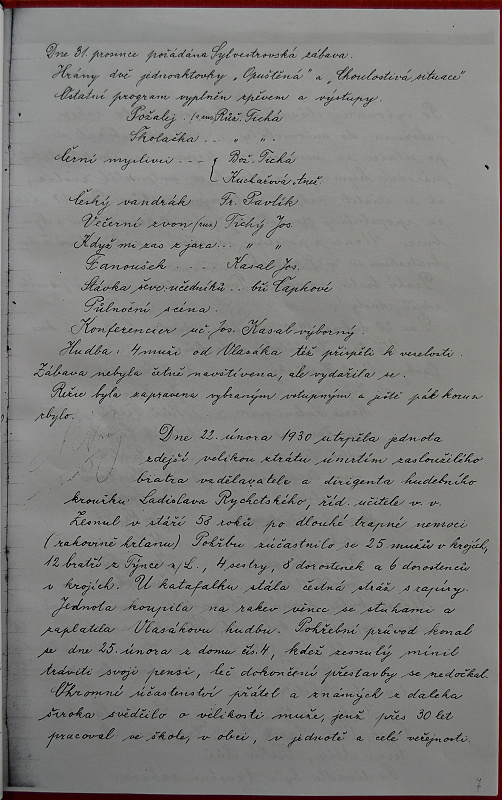 Dne 31. prosince pořádána Sylvestrovská zábava.
Hrány dvě jednoaktovky „Opuštěná" a „Choulostivá situace"
Ostatní program vyplněn zpěvem a výstupy.
Požalej . (rus) Růž. Tichá
Školačka . . „ „ .
Černí myslivci - - - { Bož. Tichá
Kuchařová Anež.
Český vandrák Fr. Pavlík
Večerní zvon (rus) Tichý Jos.
Když mi zas z jara . . . „ „
Fanoušek . . . . Kasal Jos.
Stávka ševc. učedníků . . bří Čapkové
Půlnoční scéna.
Konferencier uč. Jos. Kasal výborný.
Hudba: 4 muži od Vlasáka též přispěli k veselosti.
Zábava nebyla četně navštívena, ale vydařila se.
Režie byla zapravena vybraným vstupným a ještě pár korun
zbylo.
Dne 22. února 1930 utrpěla jednota
zdejší velikou ztrátu úmrtím zasloužilého
bratra vzdělavatele a dirigenta hudebního
kroužku Ladislava Rychetského, říd. učitele v. v.
Zesnul v stáří 58 roků po dlouhé trapné nemoci
(rakovině krtanu) Pohřbu zúčastnilo se 25 mužů v krojích,
12 bratří z Týnce n/L., 4 sestry, 8 dorostenek a 6 dorostenců
v krojích. U katafalku stála čestná stráž s rapíry.
Jednota koupila na rakev věnec se stuhami a
zaplatila Vlasákovu hudbu. Pohřební průvod konal
se dne 25. února z domu čís. 4, kdež zesnulý mínil
tráviti svoji pensi, leč dokončení přestavby se nedočkal.
Ohromné účastenství přátel a známých z daleka
široka svědčilo o velikosti muže, jenž přes 30 let
pracoval ve škole, v obci, v jednotě a celé veřejnosti.
7